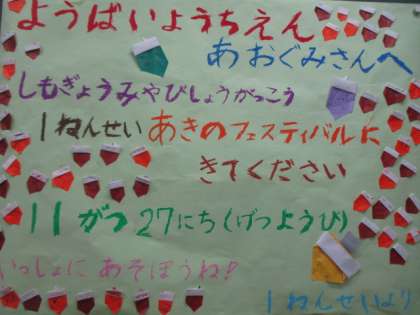 ようばいようちえん
あおぐみさんへ
しもぎょうみやびしょうがっこう
1ねんせい あきのフェスティバルに
きてください
11がつ27にち(げつようび)
いっしょに あそぼうね!
1ねんせいより